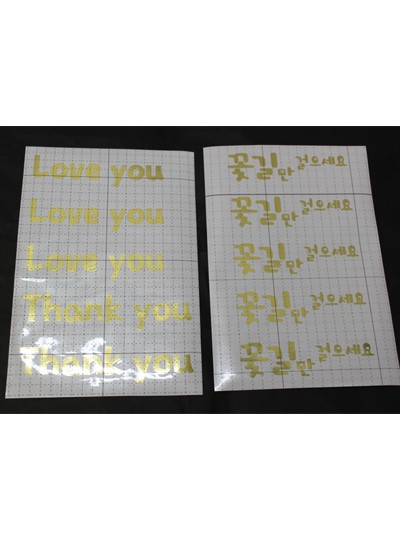 Love you
Love you
Love you
Thank you
Thank you
꽃길만 걸으세요
꽃길만 걸으세요
꽃길만 걸으세요
꽃길만 걸으세요
꽃길만 걸으세요